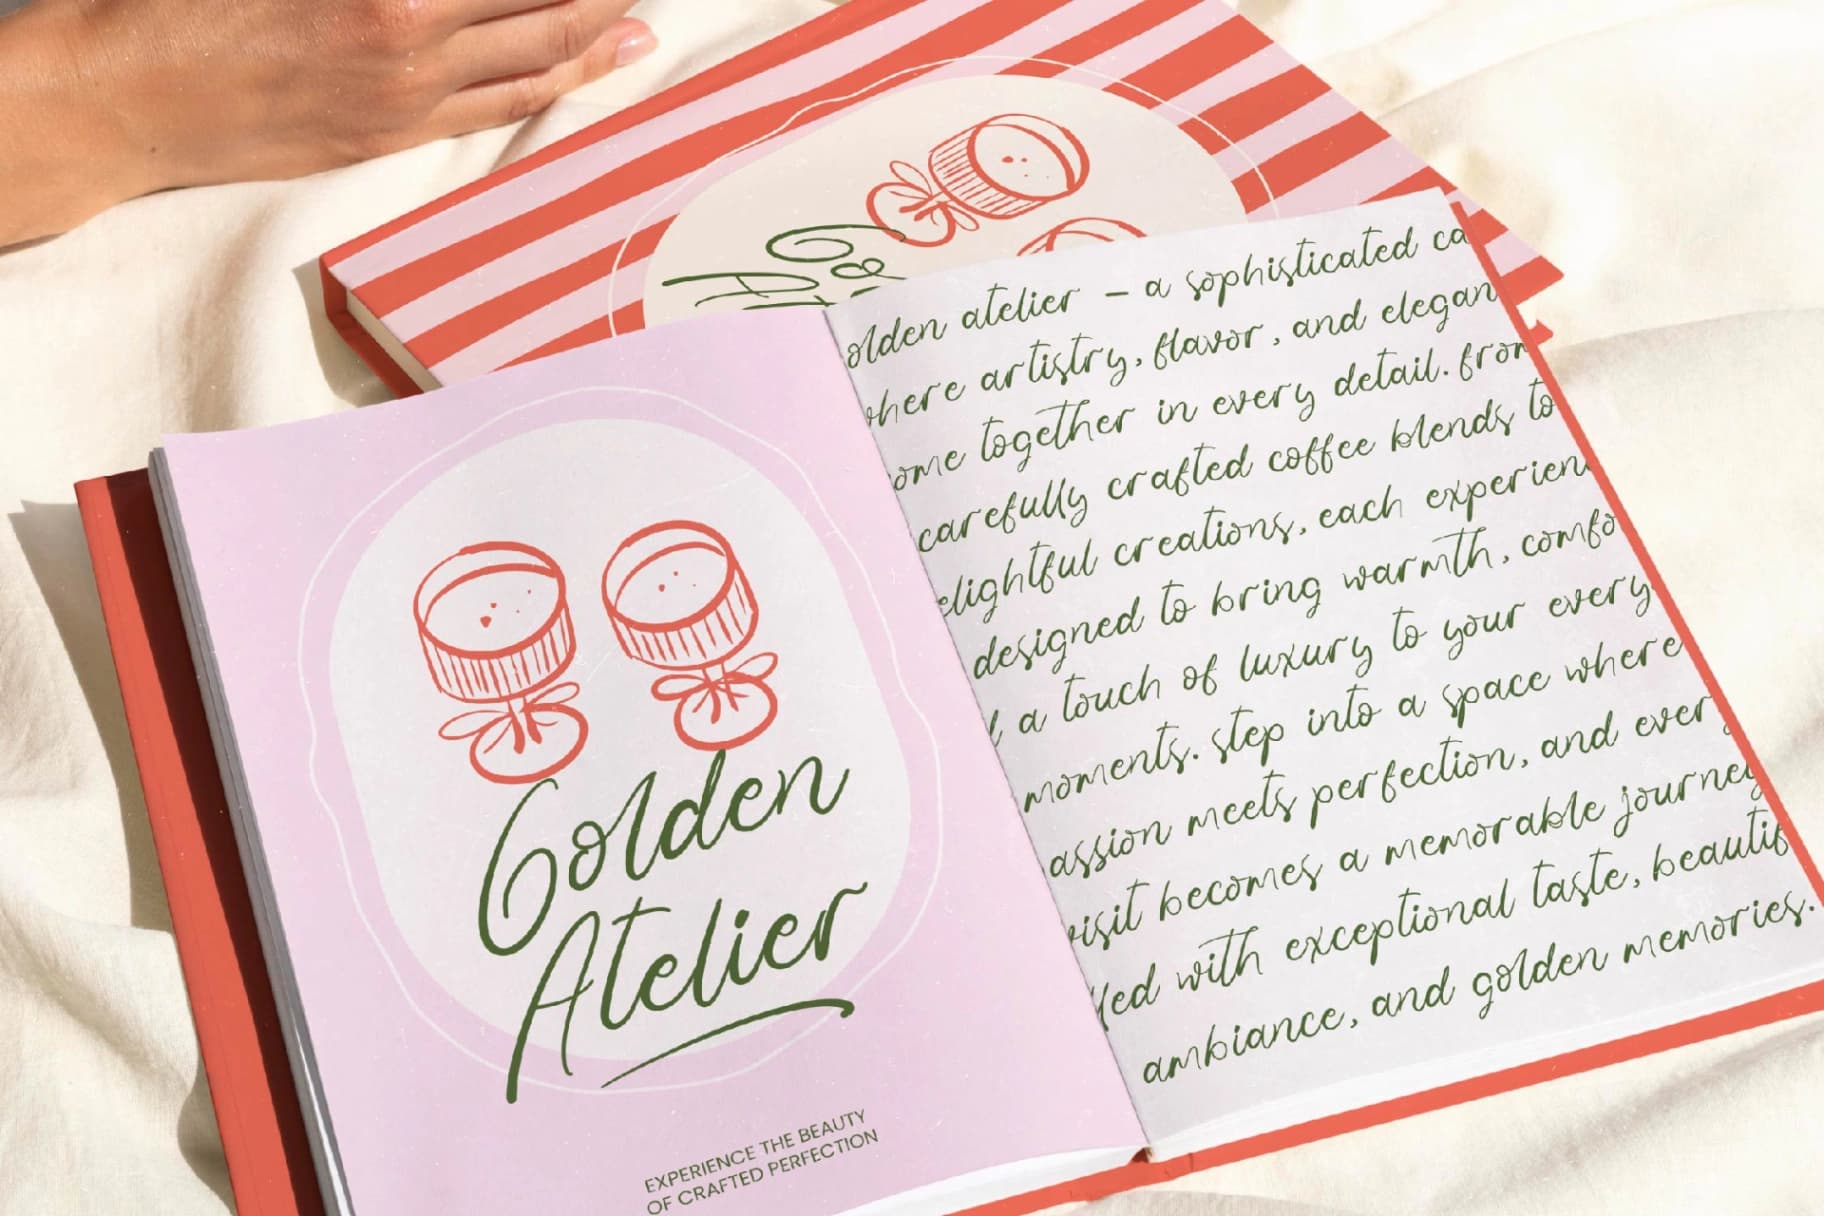 Go
At
Golden
Atelier
EXPERIENCE THE BEAUTY
OF CRAFTED PERFECTION
olden atelier – a sophisticated ca
where artistry, flavor, and elegan
ome together in every detail. from
carefully crafted coffee blends to
elightful creations, each experien
designed to bring warmth, comfo
a touch of luxury to your every
moments. step into a space where
assion meets perfection, and every
visit becomes a memorable journey
lled with exceptional taste, beautif
ambiance, and golden memories.